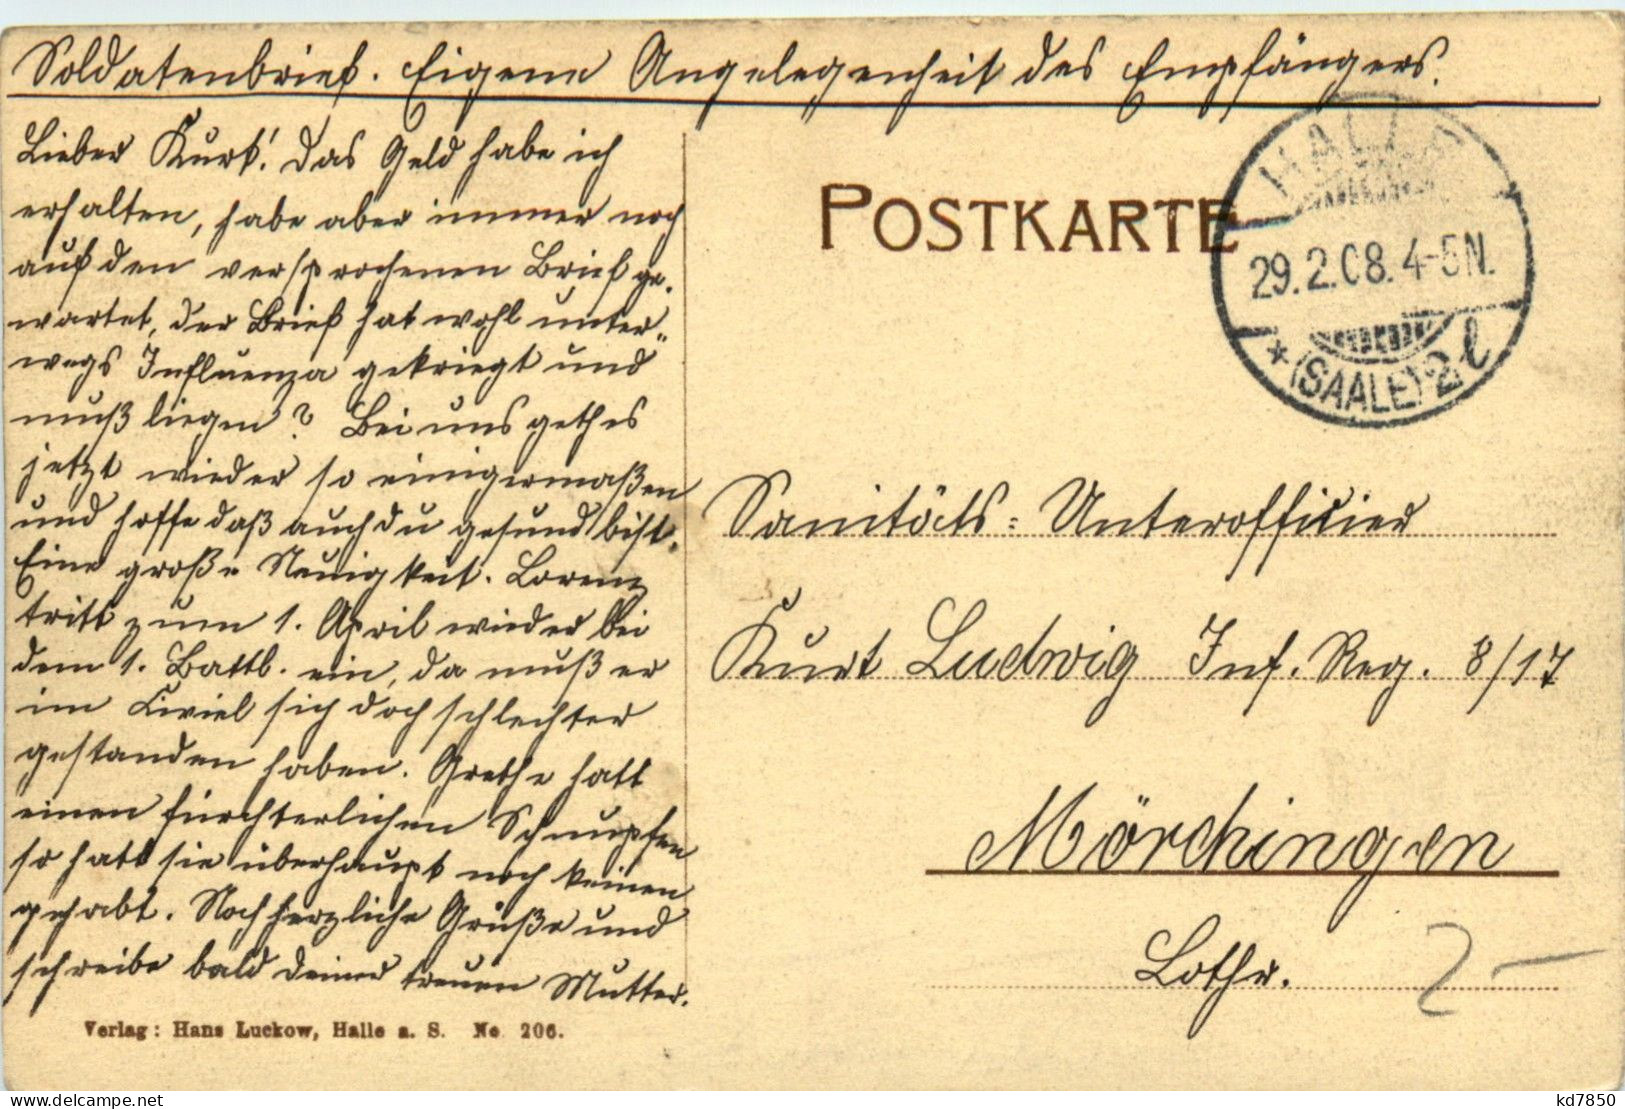 Soldatenbrief. Eigene Angelegenheit des Empfängers.
Lieber Kurt! Das Geld habe ich
erhalten, habe aber immer noch
auf den versprochenen Brief ge-
wartet, der Brief hat wohl unter-
wegs Influenza gekriegt und
muß liegen? Bei uns geth es
jetzt wieder so einigermaßen
und hoffe daß auch du gesund bist.
Eine große Neuigkeit. Lorenz
tritt zum 1. April wieder bei
dem 1. Battl. ein, da muß er
im Civiel sich doch schlechter
gestanden haben. Grethe hatt
einen fürchterlichen Schnupfen
so hatt sie überhaupt noch keinen
gehabt. Noch herzliche Grüße und
schreibe bald deiner treuen Mutter.
Verlag: Hans Luckow, Halle a. S. No 206.
POSTKARTE
HALLE
29.2.08.4-5N.
*(SAALE)2 l
Sanitäts-Unterofficier
Kurt Ludwig Inf. Reg. 8/17
Mörchingen
Lothr.
2-
http://www.delcampe.net
kd7850